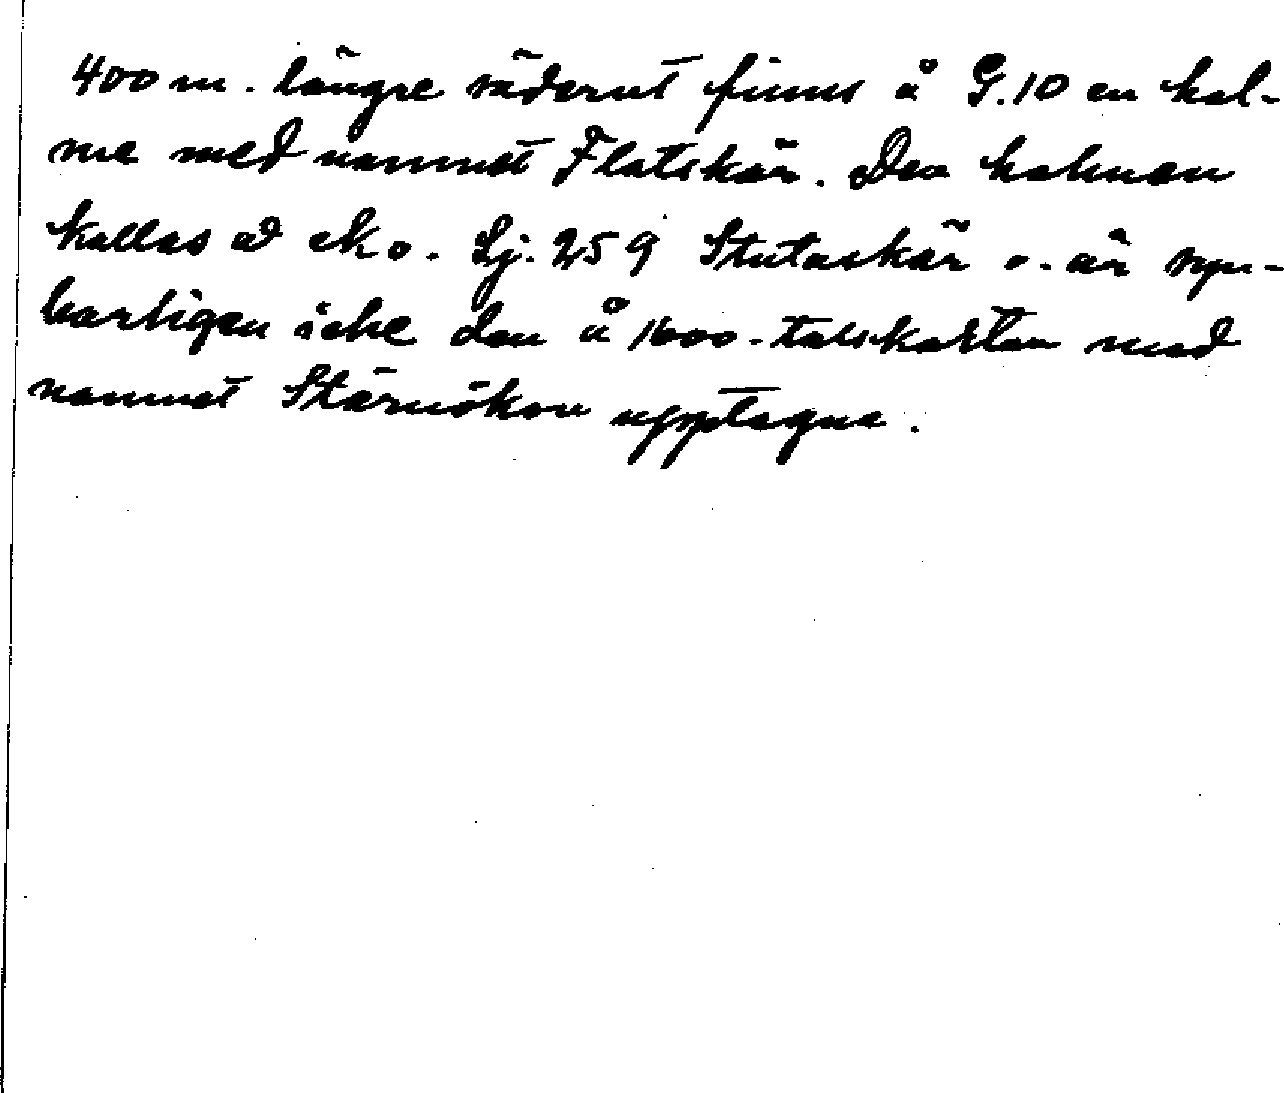 400 m. längre söderut finns å G.10 en hol-
me med namnet Flatskär. Den holmen
kallas å eko. Lj. 259 Stutaskär o. är syn-
barligen icke den å 1600-talskartan med
namnet Stärnökon upptagne.